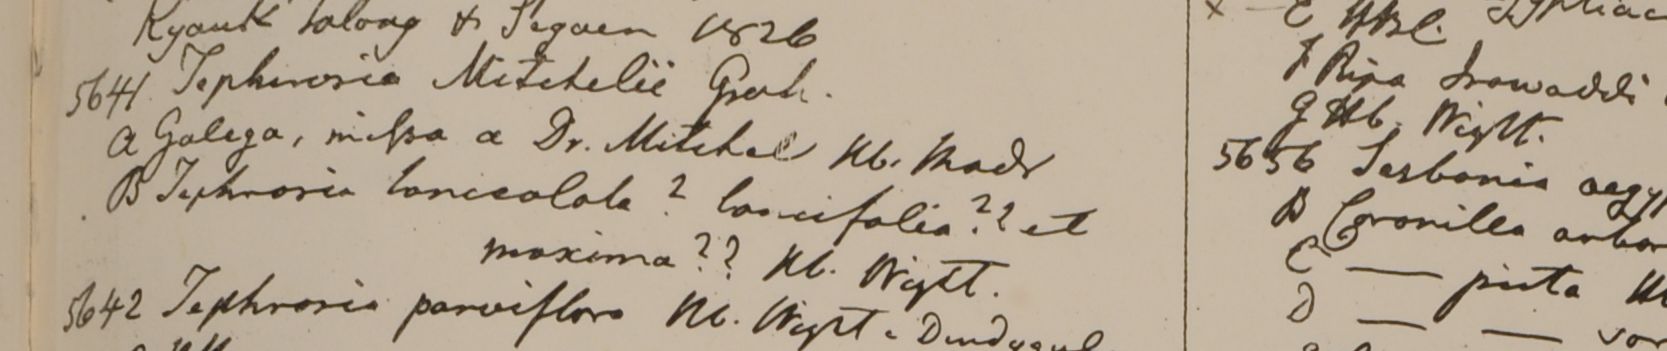 Kyouk talong & Segaen 1826
5641 Tephrosia Mitchelii Grah.
A Galega, missa a Dr. Mitchel Hb. Madr
B Tephrosia lanceolata? lancifolia?? et
maxima?? Hb. Wight.
5642 Tephrosia parviflora Hb. Wight e
x - E HBC.
F Ripa Irawaddi
G Hb. Wight.
5656 Sesbania aegy
B Coronilla arbor
C — picta H
D — —